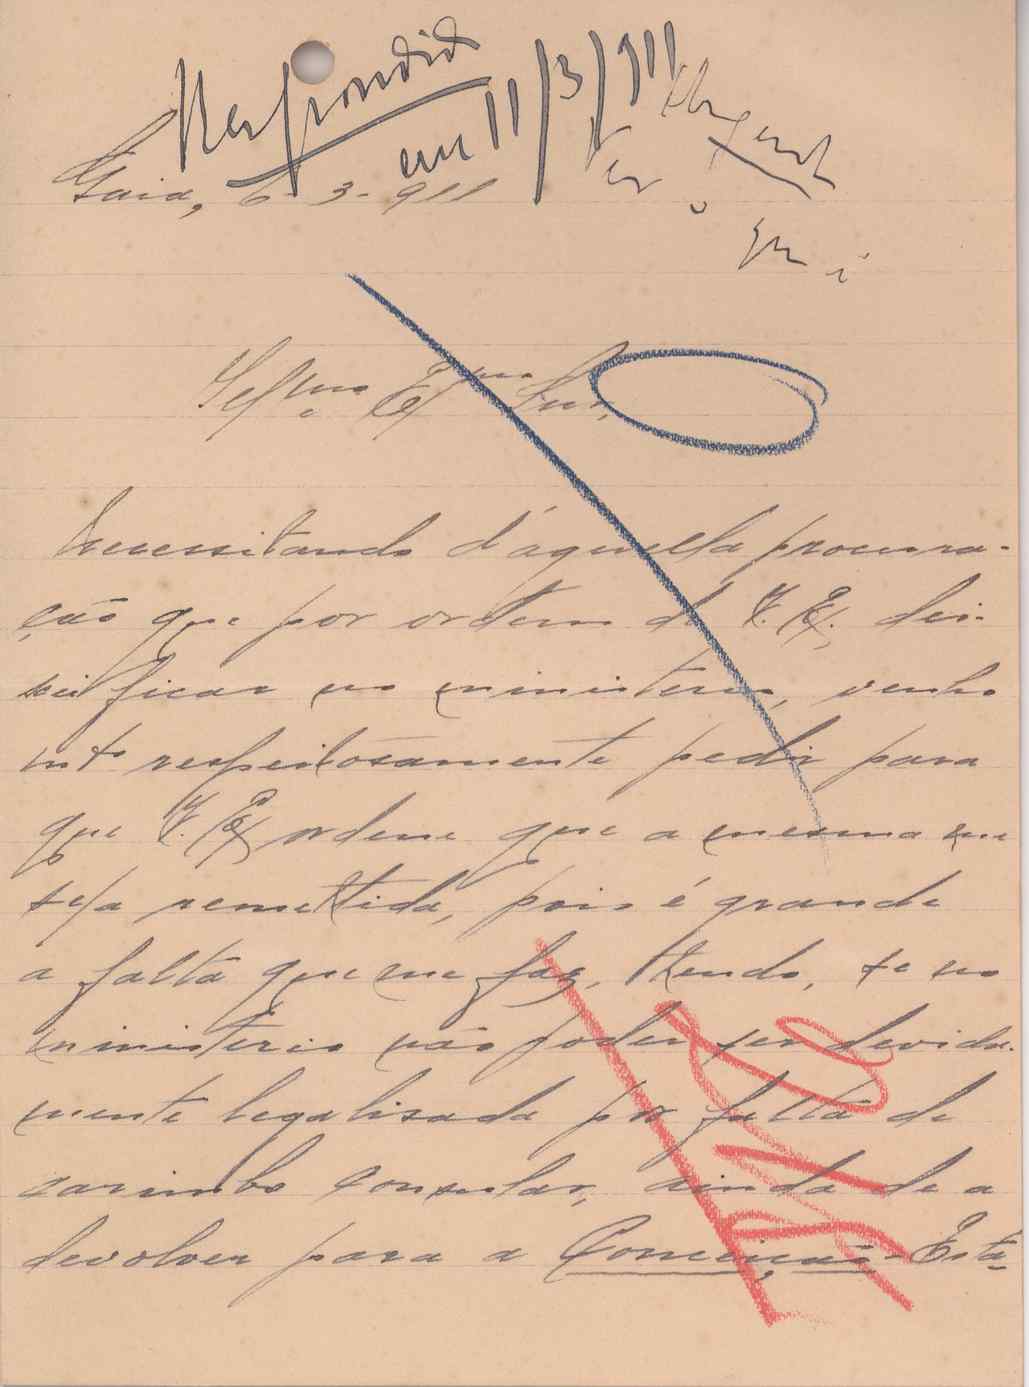 Respondido
em 11/3/911
Urgente
Ver o
que é
Gaia, 6-3-911
Illmo Exmo Snr.
Necessitando d'aquella procura-
ção que por ordem de V. Ex. dei-
xei ficar no ministerio, venho
mto respeitosamente pedir para
que V. Ex ordene que a mesma me
seja remettida, pois é grande
a falta que me faz, tendo, se no
ministerio não poder ser devida-
mente legalisada por falta de
carimbo consular, ainda de a
devolver para a Conceição-Esta-